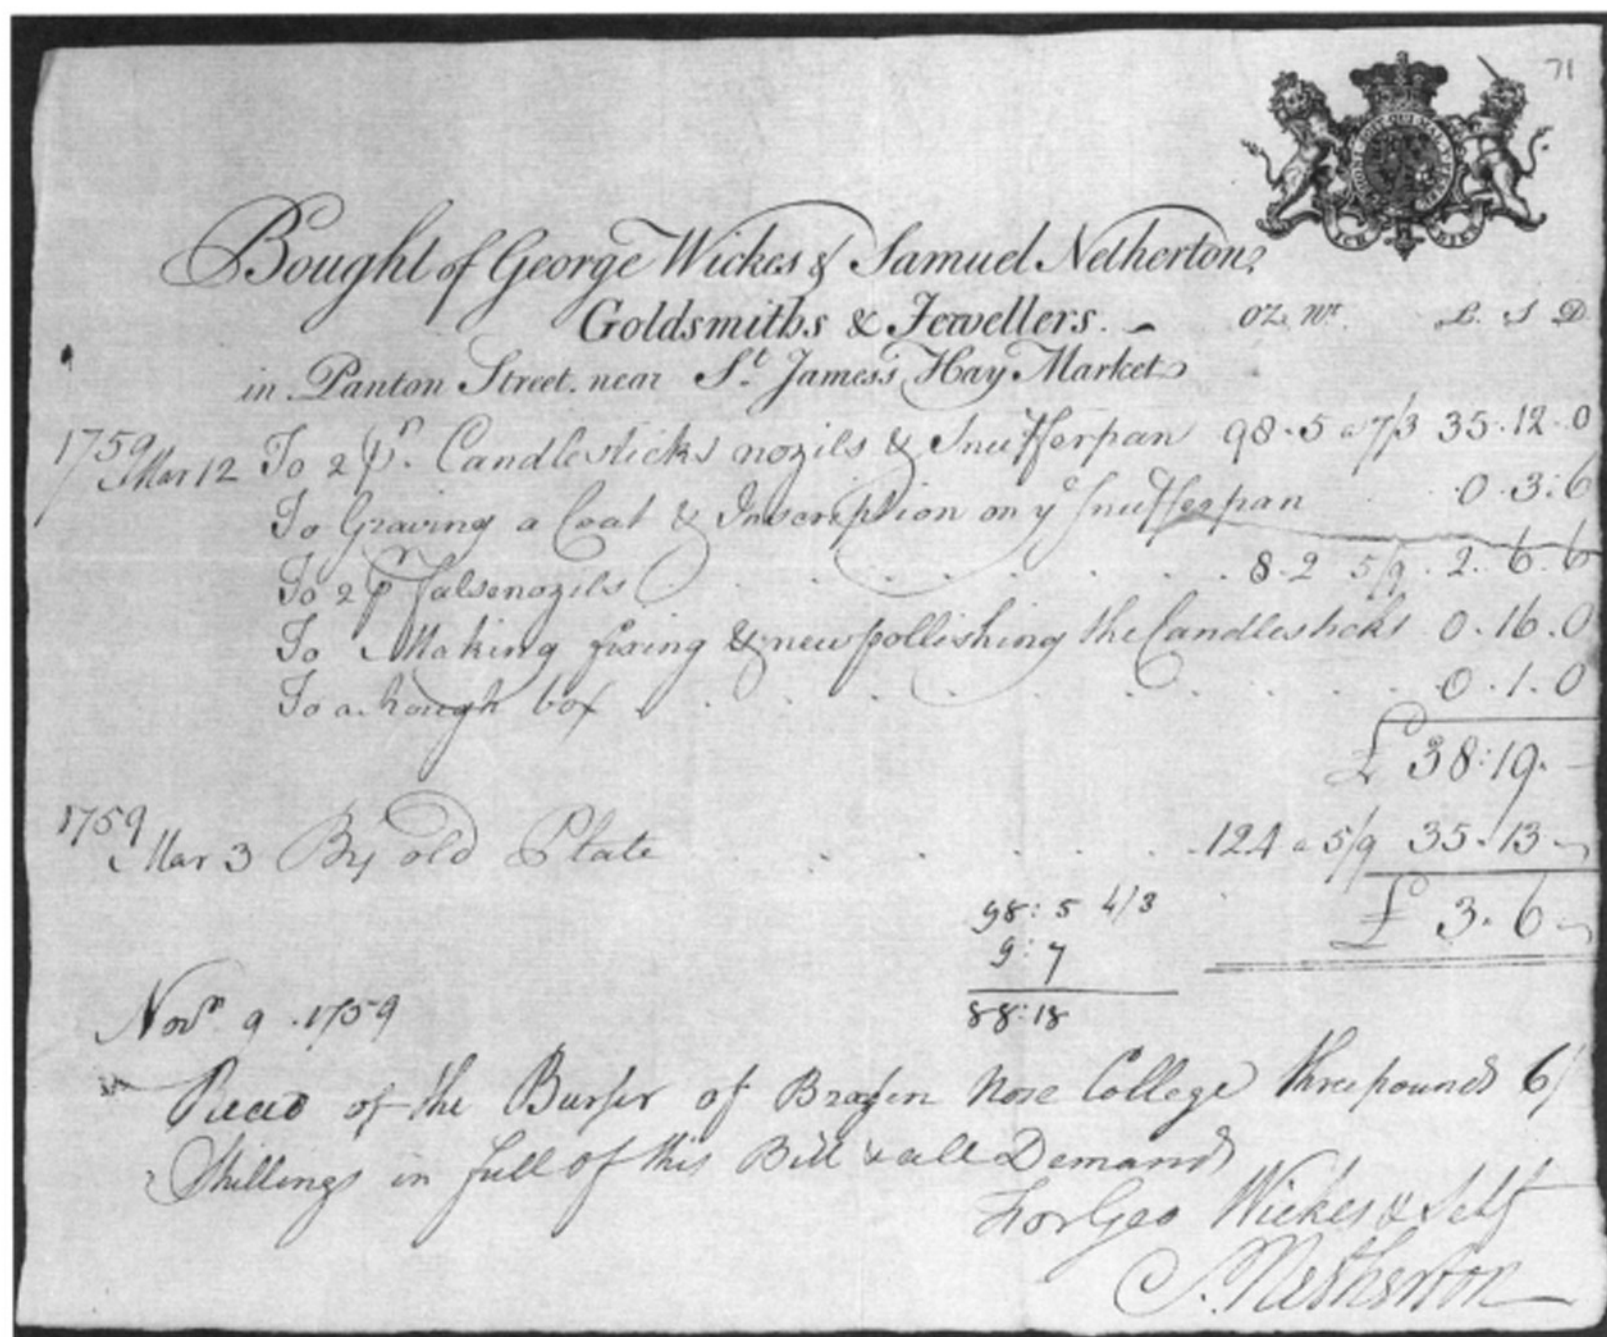 71
HONI SOIT QUI MAL Y PENSE
ICH DIEN
Bought of George Wickes & Samuel Netherton,
Goldsmiths & Jewellers. oz. wt. L. S D.
in Panton Street. near St. James's Hay Market
1759
Mar 12 To 2 pr. Candlesticks nozils & Snufferpan 98-5 a 7/3 35.12.0
To Graving a Coat & Inscription on ye Snufferpan 0.3:6
To 2 pr falsenozils 8-2 5/9. 2.6.6
To Making fixing & new pollishing the Candlesticks 0.16.0
To a box 0.1.0
£ 38:19.-
1759
Mar 3 By old Plate 124 a 5/9 35.13-
£ 3.6-
98:5 4/3
9:7
88:18
Novr 9. 1759
Recd of the Bursr of Brazen Nose College three pounds 6/
Shillings in full of this Bill & all Demands
For Geo Wickes & Self
S. Netherton